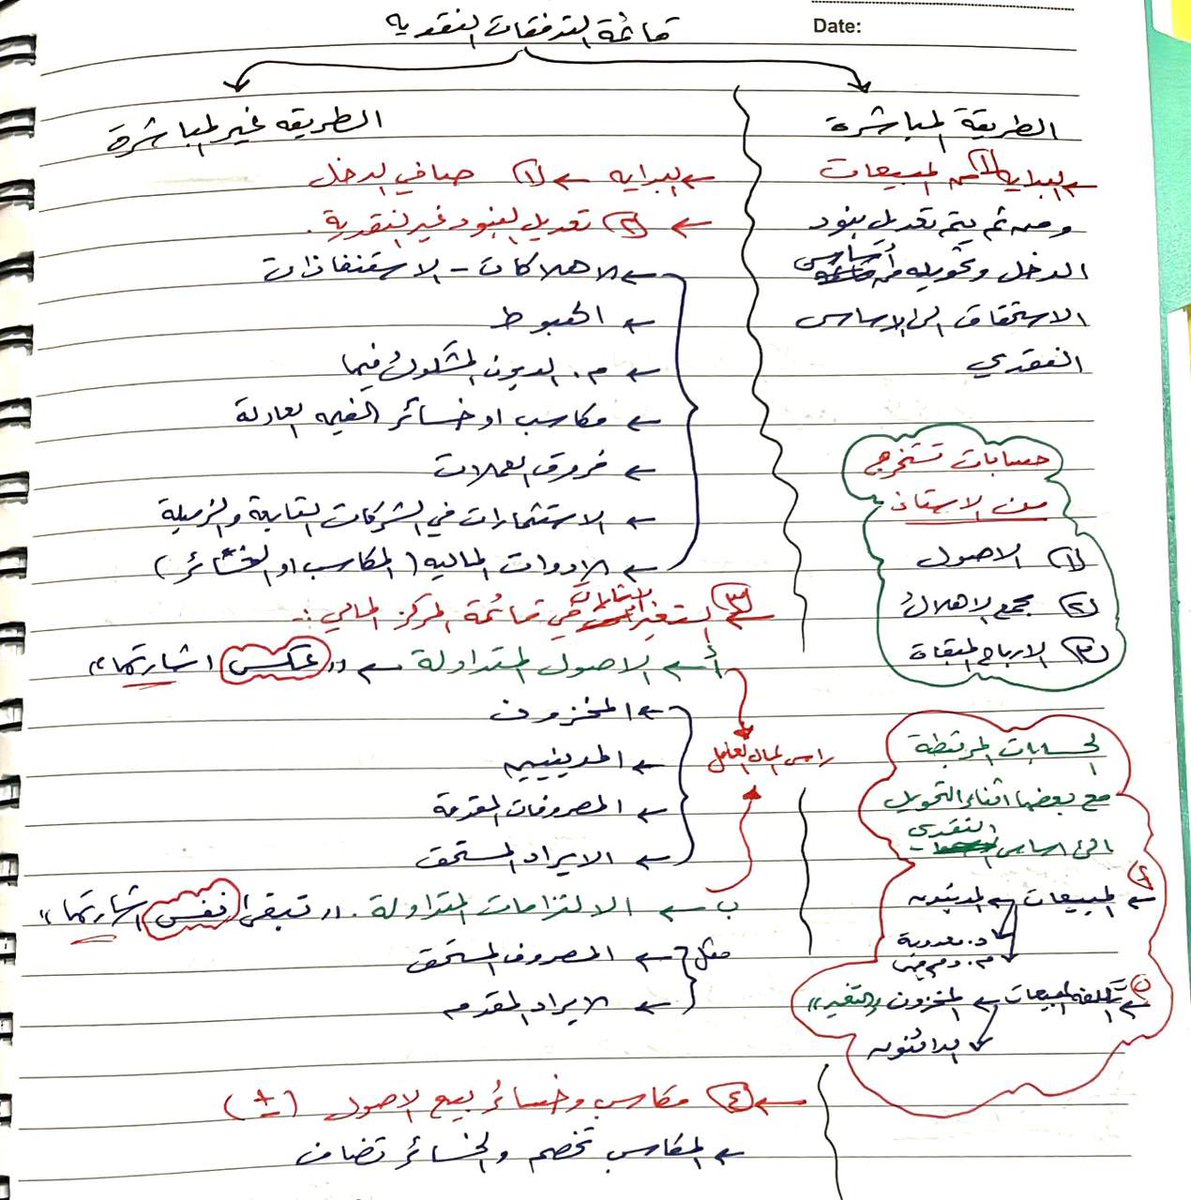 Date:
قائمة التدفقات النقديه
الطريقة المباشرة
← البدايه من المبيعات
ومن ثم يتم تعديل بنود
الدخل وتحويله من أساس
الاستحقاق الى الاساس
النقدي
حسابات تستخرج
من الاستاذ
(١) الاصول
(٢) مجمع الاهلاك
(٣) الارباح المبقاة
الحسابات المرتبطة
مع بعضها اثناء التحويل
الى اساس النقدي
← المبيعات ← المدينون
د. معدومة
م. د م فيها
← تكلفة المبيعات ← المخزون "التغير"
الدائنون
الطريقه غير المباشرة
← البدايه ← (١) صافي الدخل
← (٢) تعديل البنود غير النقدية.
← الاهلاكات - الاستنفاذات
← الهبوط
← م. الديون المشكوك فيها
← مكاسب او خسائر القيمه العادلة
← فروق العملات
← الاستثمارات في الشركات التابعة والزميلة
← الادوات الماليه (المكاسب او الخسائر)
← (٣) التغير في قائمة المركز المالي:-
أ ← الاصول المتداولة ← "عكس اشارتها"
← المخزون
← المدينين
← المصروفات المقدمة
← الايراد المستحق
راس المال العامل
ب ← الالتزامات المتداولة. "تبقى نفس اشارتها"
مثل
← المصروف المستحق
← الايراد المقدم
← (٤) مكاسب وخسائر بيع الاصول (±)
← المكاسب تخصم والخسائر تضاف